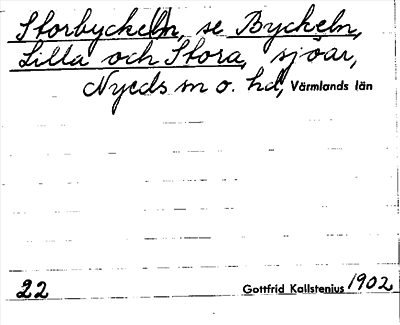 Storbyckeln, se Byckeln,
Lilla och Stora, sjöar,
Nyeds sn o. hd, Värmlands län
22 Gottfrid Kallstenius 1902